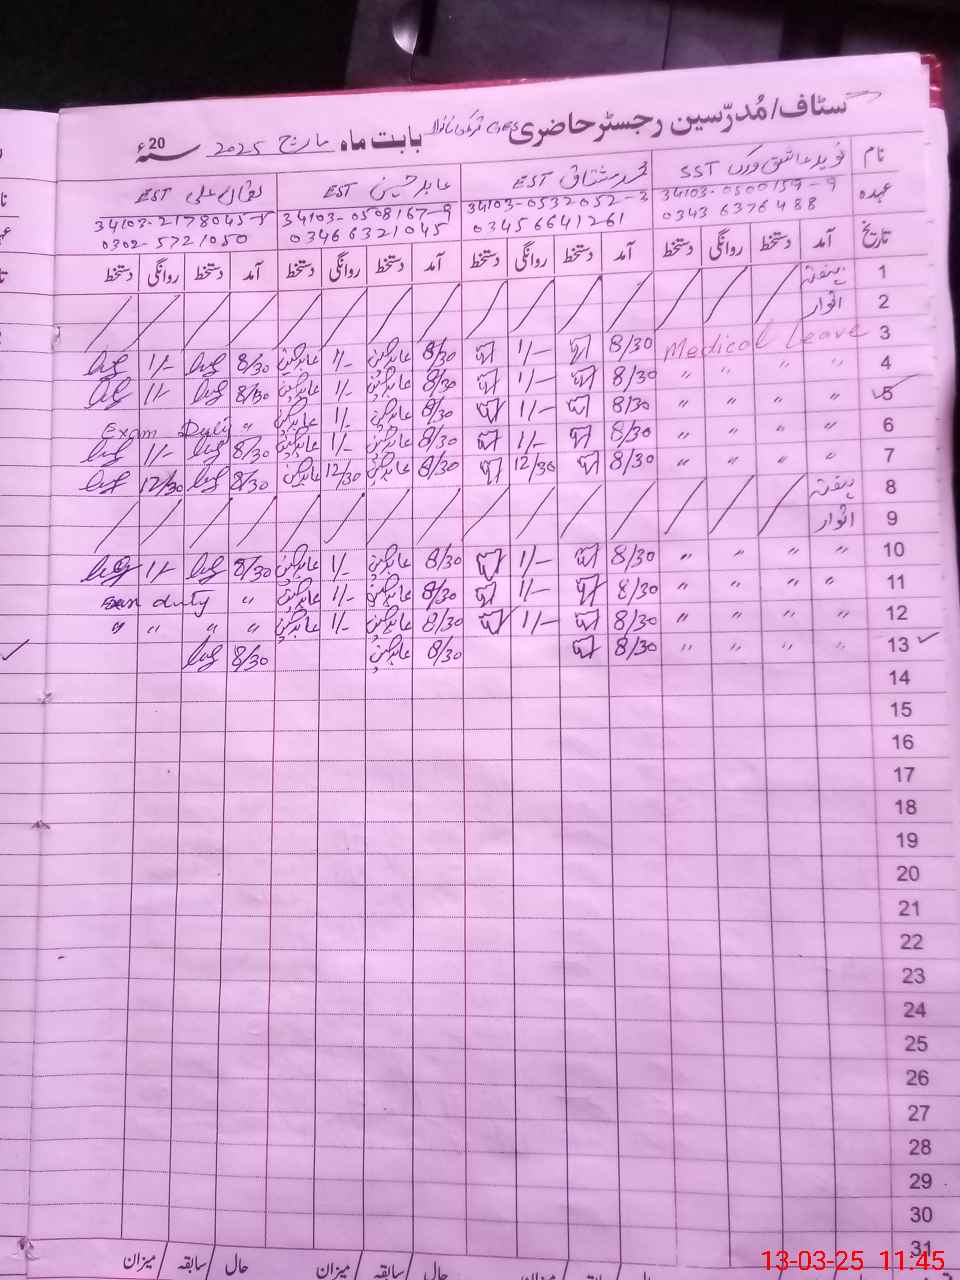 سٹاف/مُدرّسین رجسٹر حاضری GES بابت ماہ مارچ 2025 20ء
نام نوید عاشق ورک SST محمد مشتاق EST عابد حسین EST علی EST
عہدہ 34103-0500159-9 34103-0532052-3 34103-0508167-9 34103-2178045-
0343 6376488 03456641261 03466321045 0302-5721050
تاریخ آمد دستخط روانگی دستخط آمد دستخط روانگی دستخط آمد دستخط روانگی دستخط آمد دستخط روانگی دستخط
1 ہفتہ
2 اتوار
3 Medical Leave 8/30 1/- 8/30 عابد حسین 1/- عابد حسین 8/30 1/-
4 " " " " 8/30 1/- 8/30 عابد حسین 1/- عابد حسین 8/30 1/-
5 " " " " 8/30 1/- 8/30 عابد حسین 1/- عابد حسین Exam Duty "
6 " " " " 8/30 1/- 8/30 عابد حسین 1/- عابد حسین 8/30 1/-
7 " " " " 8/30 12/30 8/30 عابد حسین 12/30 عابد حسین 8/30 12/30
8 ہفتہ
9 اتوار
10 " " " " 8/30 1/- 8/30 عابد حسین 1/- عابد حسین 8/30 1/-
11 " " " " 8/30 1/- 8/30 عابد حسین 1/- عابد حسین duty "
12 " " " " 8/30 1/- 8/30 عابد حسین 1/- عابد حسین " " " "
13 " " " " 8/30 8/30 عابد حسین 8/30
14
15
16
17
18
19
20
21
22
23
24
25
26
27
28
29
30
31
حال سابقہ میزان حال سابقہ میزان
13-03-25 11:45